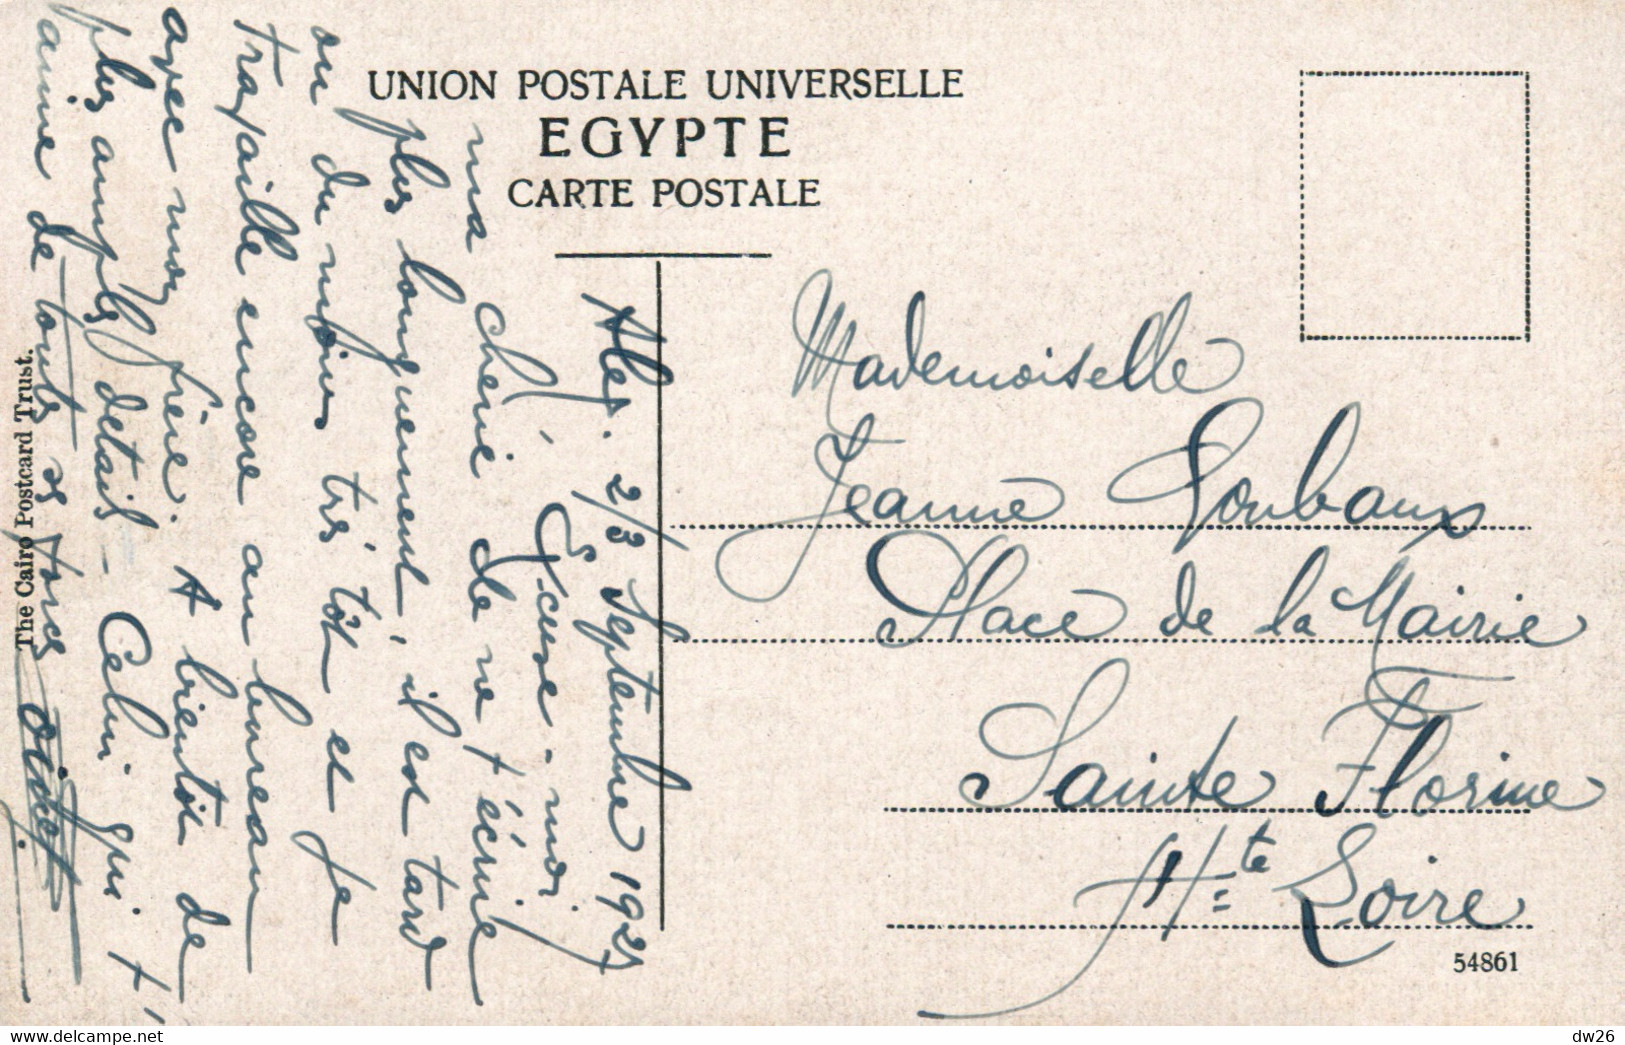 UNION POSTALE UNIVERSELLE
EGYPTE
CARTE POSTALE
Alex. 2/3 Septembre 1927
ma chérie Excuse-moi
de ne t'écrire
plus longuement, il est tard
ou du moins très tôt et je
travaille encore au bureau
avec mon frère. A bientôt de
plus amples détails - Celui qui t'
aime de toutes ses forces
Mademoiselle
Jeanne Goubaux
Place de la Mairie
Sainte Florine
Hte Loire
54861
The Cairo Postcard Trust.
dw26